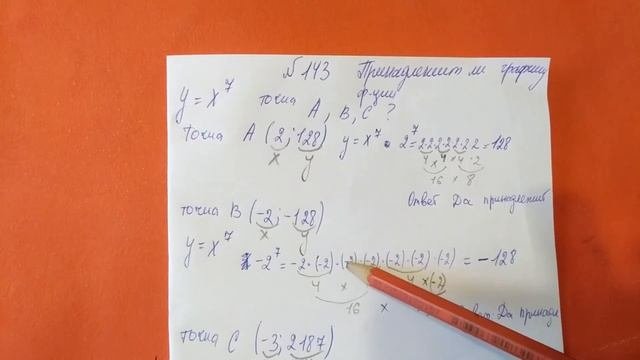 N 143 Принадлежит ли графику
ф-ции
y = x⁷ точка A, B, C ?
точка A (2; 128) y = x⁷ 2⁷ = 2·2·2·2·2·2·2 = 128
x y 4 × 4 × 4 · 2
16 × 8
Ответ Да принадлежит
точка B (-2; -128)
x y
y = x⁷ -2⁷ = -2·(-2)·(-2)·(-2)·(-2)·(-2)·(-2) = -128
4 × 4 ×(-2)
16 ×
Да принадл
точка C (-3; 2187)